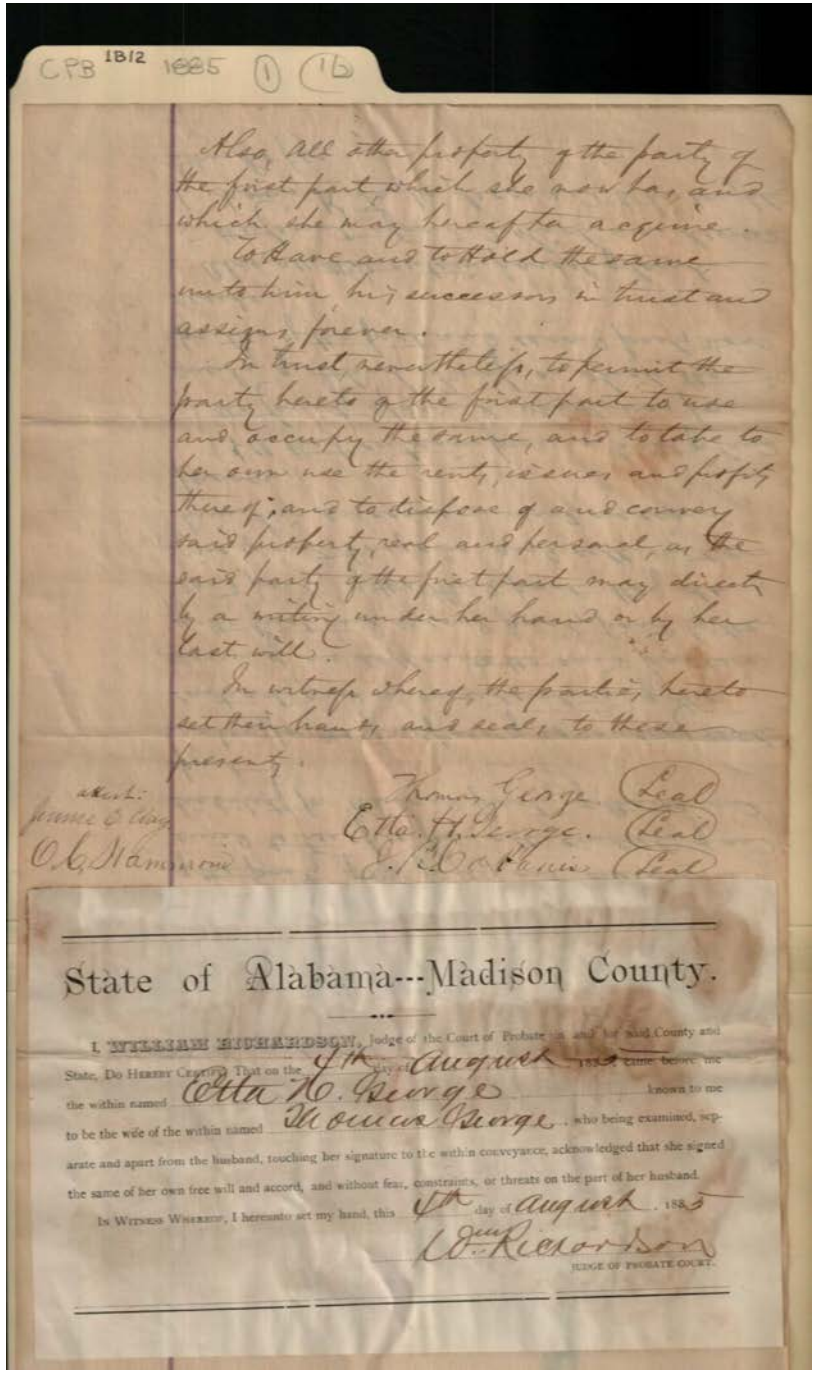 CPB 1B12 1885 1 1b
Also, All other property of the party of
the first part, which she now has, and
which she may hereafter acquire.
To Have and to Hold the same
unto him his successors in trust and
assigns, forever.
In trust nevertheless, to permit the
party hereto of the first part to use
and occupy the same, and to take to
her own use the rents, issues and profits
thereof; and to dispose of and convey
said property, real and personal, as the
said party of the first part may direct
by a writing under her hand or by her
last will.
In witness whereof, the parties hereto
set their hands and seals to these
presents.
attest:
Thomas George (Seal)
Jennie C Clay
Etta. H. George. (Seal)
O. C. Hammond
(Seal)
State of Alabama---Madison County.
I, WILLIAM RICHARDSON, Judge of the Court of Probate in and for said County and
State, Do HEREBY CERTIFY That on the 4th day of August 1885, came before me
the within named Etta H. George known to me
to be the wife of the within named Thomas George, who being examined, sep-
arate and apart from the husband, touching her signature to the within conveyance, acknowledged that she signed
the same of her own free will and accord, and without fear, constraints, or threats on the part of her husband.
IN WITNESS WHEREOF, I hereunto set my hand, this 4th day of August, 1885
Wm Richardson
JUDGE OF PROBATE COURT.